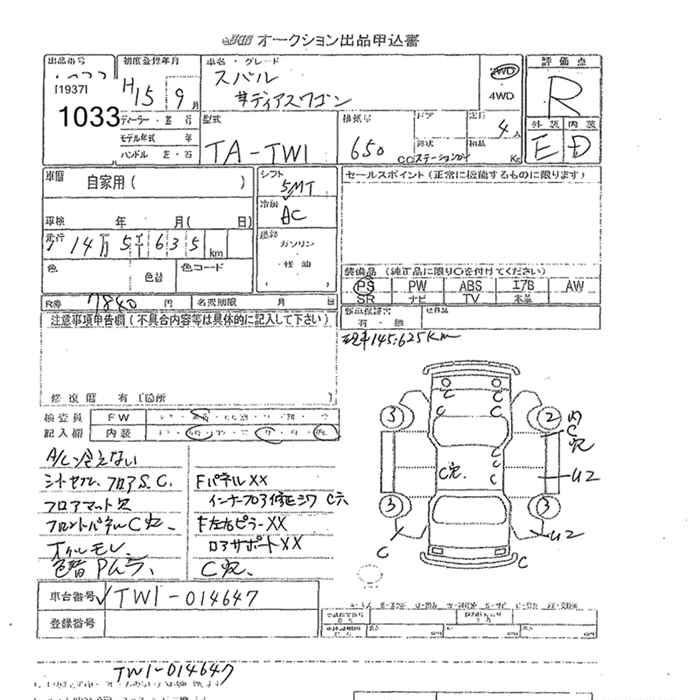 オークション出品申込書
出品番号 初度登録年月 車名・グレード 評価点
[1937]
1033
H15 9月
スバル
サンディアスワゴン
4WD
R
ディーラー・並行
モデル年式 年
ハンドル 左・右
型式
TA-TW1
排気量
650 CC
ドア
形状
ステーションワゴン
定員
4人
積載
Kg
外装 内装
E D
車歴
自家用( )
シフト
5MT
冷房
AC
セールスポイント(正常に機能するものに限ります)
車検 年 月( 日)
走行
14万5千635km
燃料
ガソリン
・軽油
( )
色 色替 色コード
装備品(純正品に限り○を付けてください)
PS PW ABS エアB AW
SR ナビ TV 本革
R券 7840円 名変期限 月 日
新車保証書
有・無
注意事項申告欄(不具合内容等は具体的に記入して下さい)
現車145,625km
修復歴 有〔箇所 〕
検査員 FW
記入欄 内装
A/C冷えない
シートセル、フロアS.C.
フロアマット欠
フロントパネルC穴、
オイルモレ、
色替Pムラ、
FパネルXX
インナーフロア修正シワ C穴
F左右ピラーXX
ロアサポートXX
C穴、
3
C
C
C
C
2
内
C
穴
C穴
C
C
U2
3
3
C
U2
C
車台番号 TW1-014647
登録番号
TW1-014647